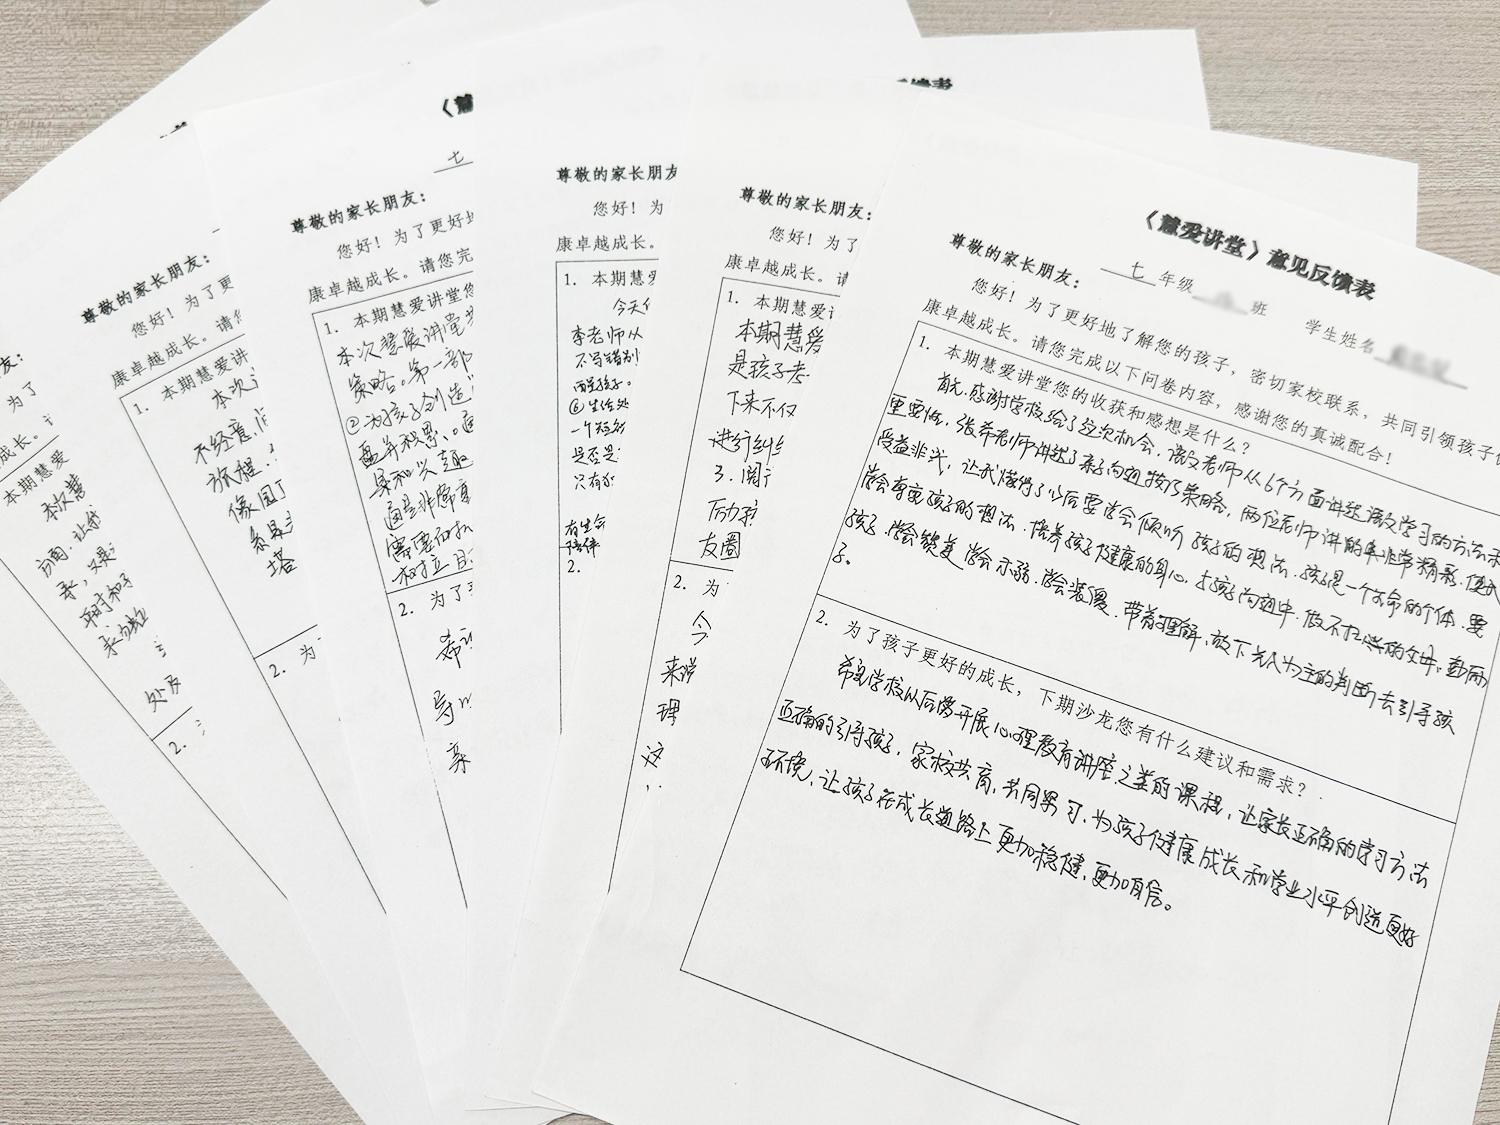 《慧爱讲堂》意见反馈表
七 年级 班 学生姓名
尊敬的家长朋友：
您好！为了更好地了解您的孩子，密切家校联系，共同引领孩子健
康卓越成长。请您完成以下问卷内容，感谢您的真诚配合！
1. 本期慧爱讲堂您的收获和感想是什么？
首先，感谢学校给了这次机会，语文老师从6个方面讲述语文学习的方法和
重要性，张希老师讲述了亲子沟通技巧策略，两位老师讲的都非常精彩，使我
受益非浅，让我懂得了以后要学会倾听孩子的想法，孩子是一个生命的个体，要
学会尊重孩子的想法，培养孩子健康的身心，与孩子沟通中，做不扫兴的父母，
孩子，学会赞美，学会示弱，学会装傻，带着理解，放下先入为主的判断去引导孩
子。
2. 为了孩子更好的成长，下期沙龙您有什么建议和需求？
希望学校以后多开展心理教育讲座之类的课程，让家长正确的学习方法
正确的引导孩子，家校共育，共同学习，为孩子健康成长和学业水平创造更好
环境，让孩子在成长道路上更加稳健，更加自信。
尊敬的家长朋友：
您好！为了
康卓越成长。请
1. 本期慧爱
本期慧爱
是孩子
下来不仅
进行纠
3.
友圈
2. 为
今
来说
理
这
尊敬的家长朋友
您好！为
康卓越成长。
1. 本期慧爱
今天
李老师从
不写错别
一个
是否是
只有
有生命
陪伴
2.
《慧
七
尊敬的家长朋友：
您好！为了更好地
康卓越成长。请您完
1. 本期慧爱讲堂您
本次慧爱讲堂
策略。第一部
②为孩子创造
盖并积累。
具和兴趣
通是非常
需要
树立
2. 为了
希
导
亲
尊敬的家长朋友：
您好！为了更
康卓越成长。请您
1. 本期慧爱讲
本次
不经意
旅程
像园丁
系是
塔
2. 为
友：
为了
成长。
本期慧爱
本次慧
方面，让我
承
和子
处
2.